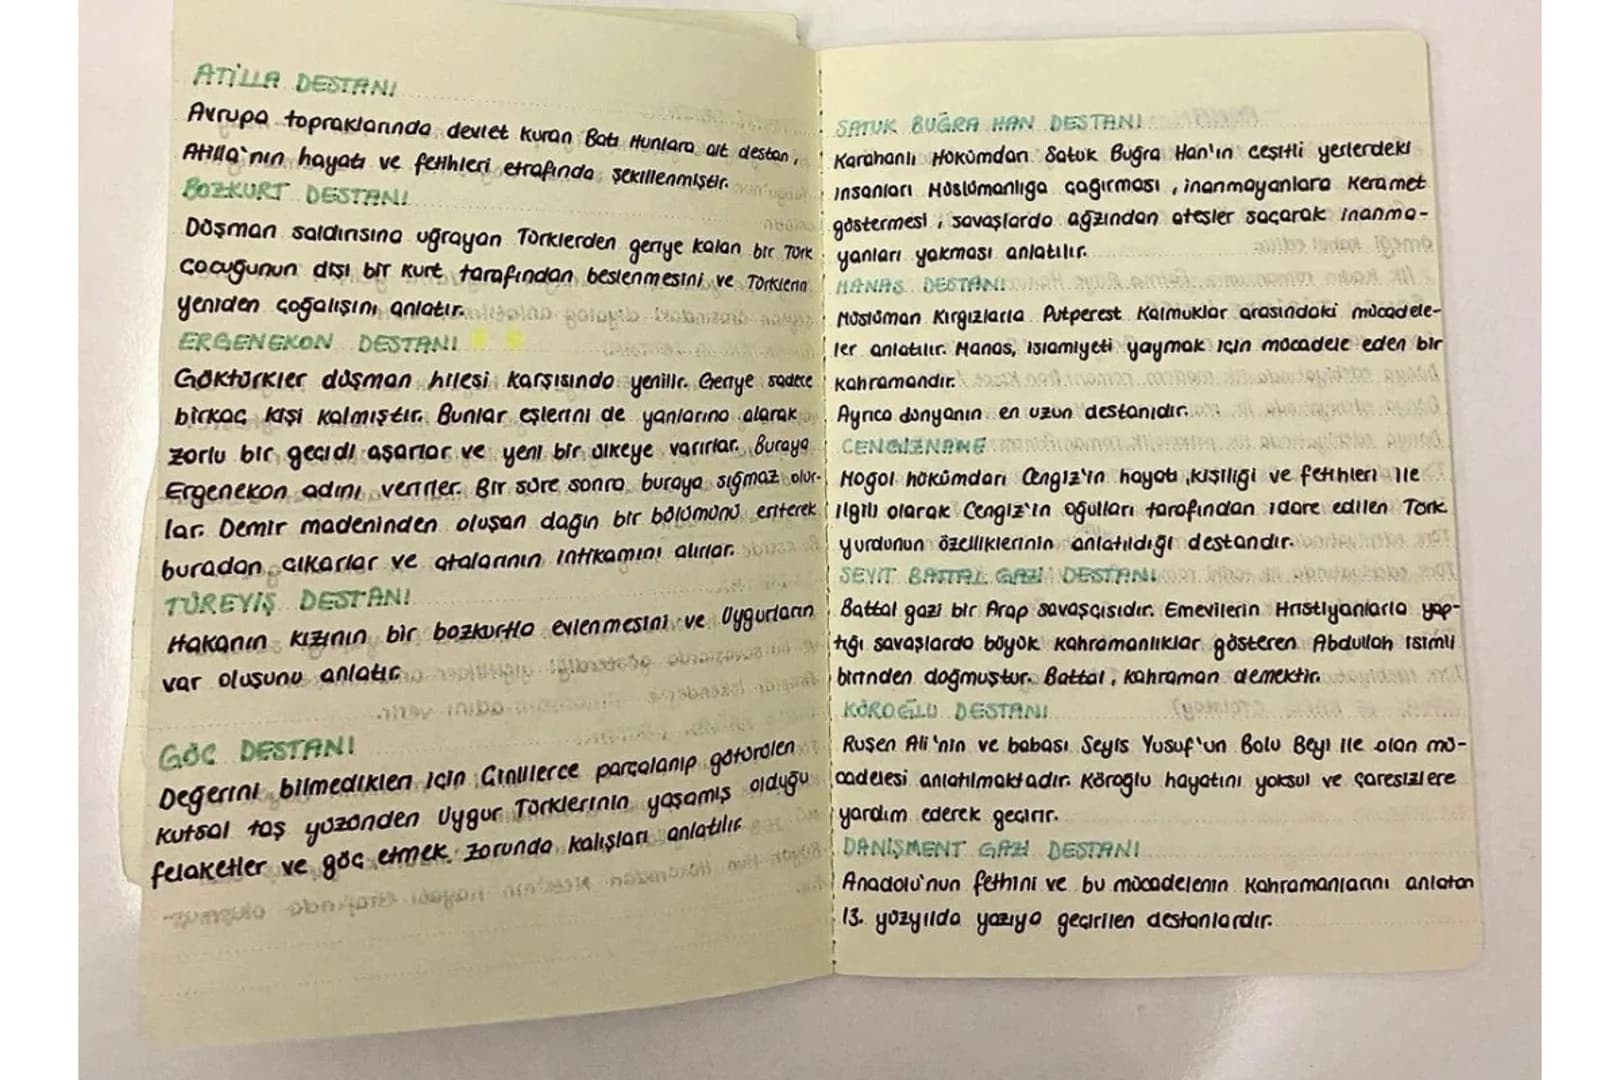 ATİLLA DESTANI
Avrupa topraklarında devlet kuran Batı Hunlara ait destan,
Atilla'nın hayatı ve fetihleri etrafında şekillenmiştir.
BOZKURT DESTANI
Düşman saldırısına uğrayan Türklerden geriye kalan bir Türk
çocuğunun dişi bir kurt tarafından beslenmesini ve Türklerin
yeniden çoğalışını anlatır.
ERGENEKON DESTANI
Göktürkler düşman hilesi karşısında yenilir. Geriye sadece
birkaç kişi kalmıştır. Bunlar eşlerini de yanlarına alarak
zorlu bir geçidi aşarlar ve yeni bir ülkeye varırlar. Buraya
Ergenekon adını verirler. Bir süre sonra buraya sığmaz olur-
lar. Demir madeninden oluşan dağın bir bölümünü eriterek
buradan çıkarlar ve atalarının intikamını alırlar.
TÜREYİŞ DESTANI
Hakanın kızının bir bozkurtla evlenmesini ve Uygurların
var oluşunu anlatır.
GÖÇ DESTANI
Değerini bilmedikleri için Çinlilerce parçalanıp götürülen
kutsal taş yüzünden Uygur Türklerinin yaşamış olduğu
felaketler ve göç etmek zorunda kalışları anlatılır.
SATUK BUĞRA HAN DESTANI
Karahanlı Hükümdarı Satuk Buğra Han'ın çeşitli yerlerdeki
insanları Müslümanlığa çağırması, inanmayanlara keramet
göstermesi, savaşlarda ağzından ateşler saçarak inanma-
yanları yakması anlatılır.
MANAS DESTANI
Müslüman Kırgızlarla Putperest Kalmuklar arasındaki mücadele-
ler anlatılır. Manas, İslamiyeti yaymak için mücadele eden bir
kahramandır.
Ayrıca dünyanın en uzun destanıdır.
CENGİZNAME
Moğol hükümdarı Cengiz'in hayatı, kişiliği ve fetihleri ile
ilgili olarak Cengiz'in oğulları tarafından idare edilen Türk
yurdunun özelliklerinin anlatıldığı destandır.
SEYİT BATTAL GAZİ DESTANI
Battal gazi bir Arap savaşçısıdır. Emevilerin Hristiyanlarla yap-
tığı savaşlarda büyük kahramanlıklar gösteren Abdullah isimli
birinden doğmuştur. Battal, kahraman demektir.
KÖROĞLU DESTANI
Ruşen Ali'nin ve babası Seyis Yusuf'un Bolu Beyi ile olan mü-
cadelesi anlatılmaktadır. Köroğlu hayatını yoksul ve çaresizlere
yardım ederek geçirir.
DANİŞMENT GAZİ DESTANI
Anadolu'nun fethini ve bu mücadelenin kahramanlarını anlatan
13. yüzyılda yazıya geçirilen destanlardır.